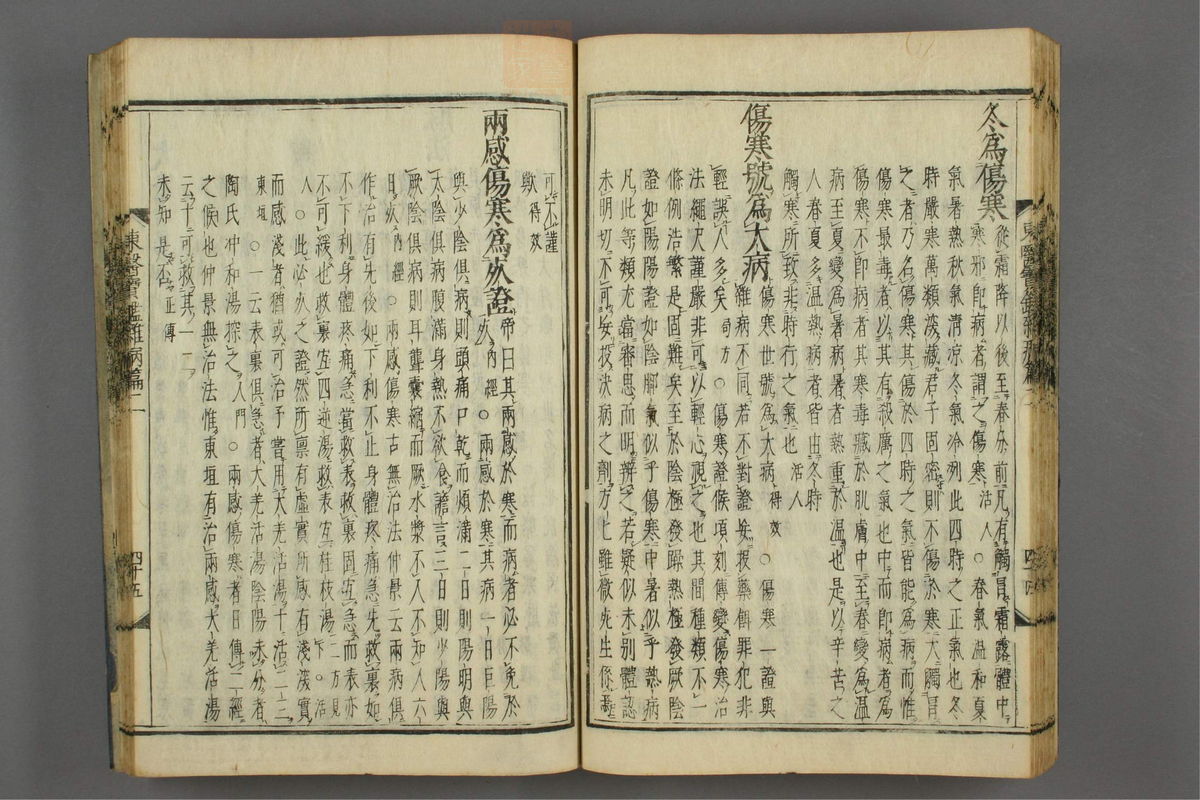 冬為傷寒 從霜降以後至春分前凡有觸冒霜露體中
寒邪即病者謂之傷寒 活人 ○春氣溫和夏
氣暑熱秋氣清凉冬氣冷冽此四時之正氣也冬
時嚴寒萬類深藏君子固密則不傷於寒大觸冒
之者乃名傷寒其傷於四時之氣皆能為病而惟
傷寒最毒者以其有殺厲之氣也中而即病者為
傷寒不即病者其寒毒藏於肌膚中至春變為溫
病至夏變為暑病暑者熱重於溫也是以辛苦之
人春夏多溫熱病者皆由冬時
觸寒所致非時行之氣也 活人
傷寒號為大病 傷寒世號為大病 得效 ○傷寒一證與
雜病不同若不對證妄投藥餌罪犯非
輕誤人多矣 局方 ○傷寒證候頃刻傳變傷寒治
法繩尺謹嚴非可以輕心視之也其間種類不一
條例浩繁是固難矣至於陰極發躁熱極發厥陰
證如陽陽證如陰脚氣似乎傷寒中暑似乎熱病
凡此等類尤當審思而明辨之若疑似未別體認
未明切不可妄投決病之劑方匕雖微死生係焉
可不謹
歟 得效
兩感傷寒為死證 帝曰其兩感於寒而病者必不免於
死 內經 ○兩感於寒其病一日巨陽
與少陰俱病則頭痛口乾而煩滿二日則陽明與
太陰俱病腹滿身熱不欲食譫言三日則少陽與
厥陰俱病則耳聾囊縮而厥水漿不入不知人六
日死 內經 ○兩感傷寒古無治法仲景云兩病俱
作治有先後如下利不止身體疼痛急先救裏如
不下利身體疼痛急當救表救裏固宜急而表亦
不可緩也救裏宜四逆湯救表宜桂枝湯 二方見下○活
人 ○此必死之證然所稟有虛實所感有淺深實
而感淺者猶或可治予嘗用大羌活湯十活二三
東垣 ○一云表裏俱急者大羌活湯陰陽未分者
陶氏冲和湯探之 入門 ○兩感傷寒者日傳二經
之候也仲景無治法惟東垣有治兩感大羌活湯
云十可救其一二
未知是否 正傳
東醫寶鑑雜病篇二
四十五